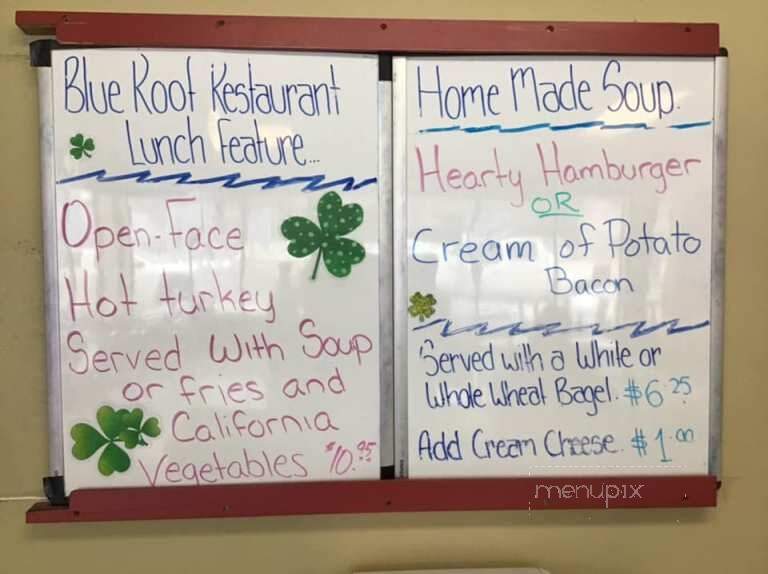 Blue Roof Restaurant
Lunch Feature...
Open-Face
Hot turkey
Served With Soup
or fries and
California
Vegetables $10.95
Home Made Soup.
Hearty Hamburger
OR
Cream of Potato
Bacon
Served with a White or
Whole Wheat Bagel. $6.25
Add Cream Cheese. $1.00
menupix